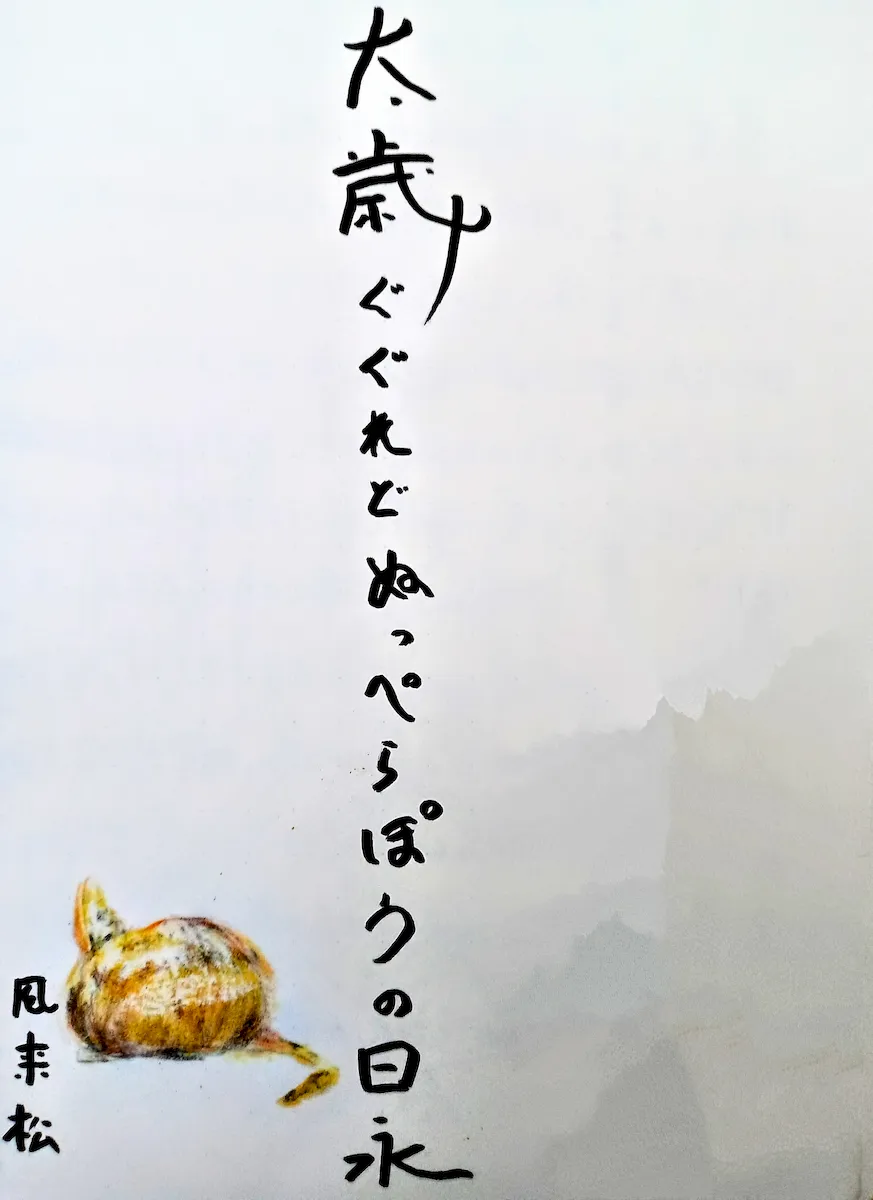 太歳ぐぐれどぬっぺらぽうの日永
風来松